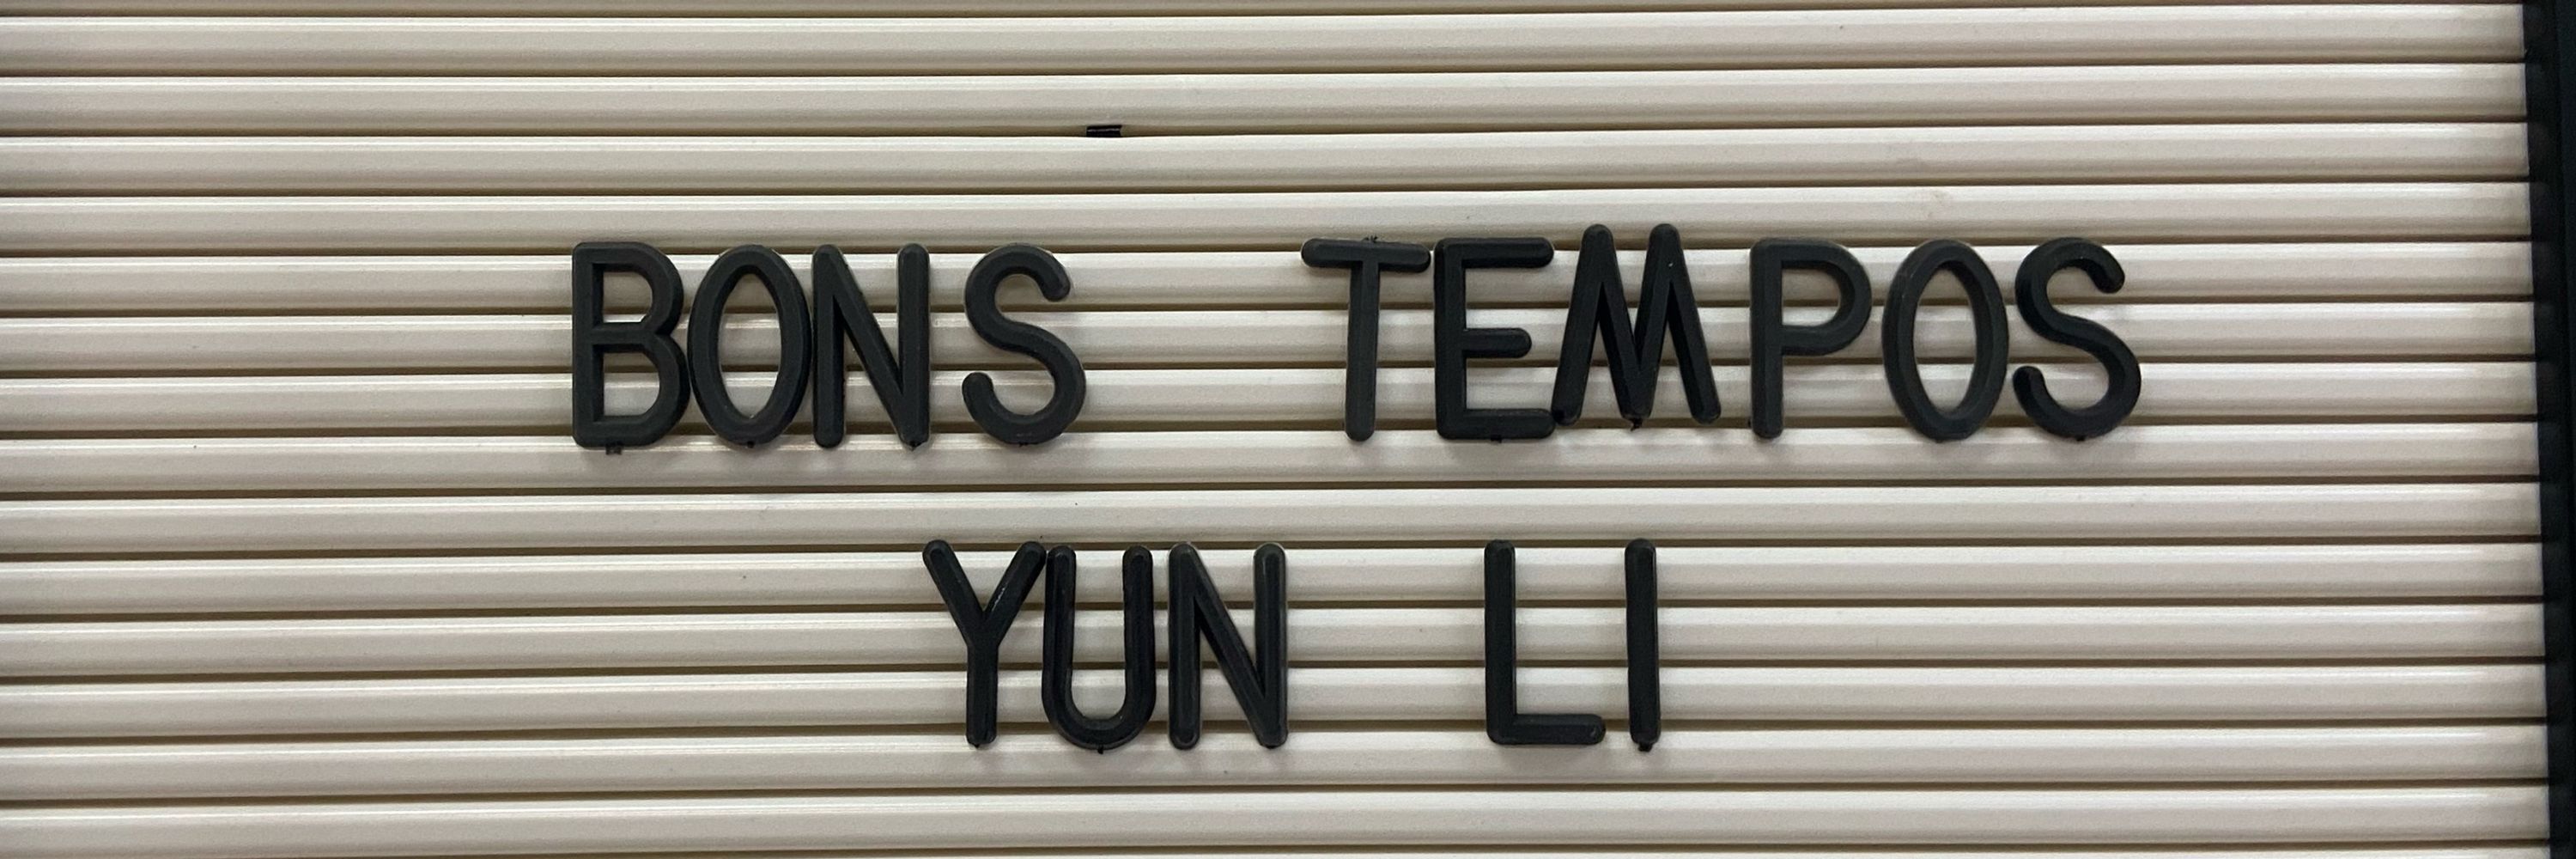 BONS TEMPOS
YUN LI